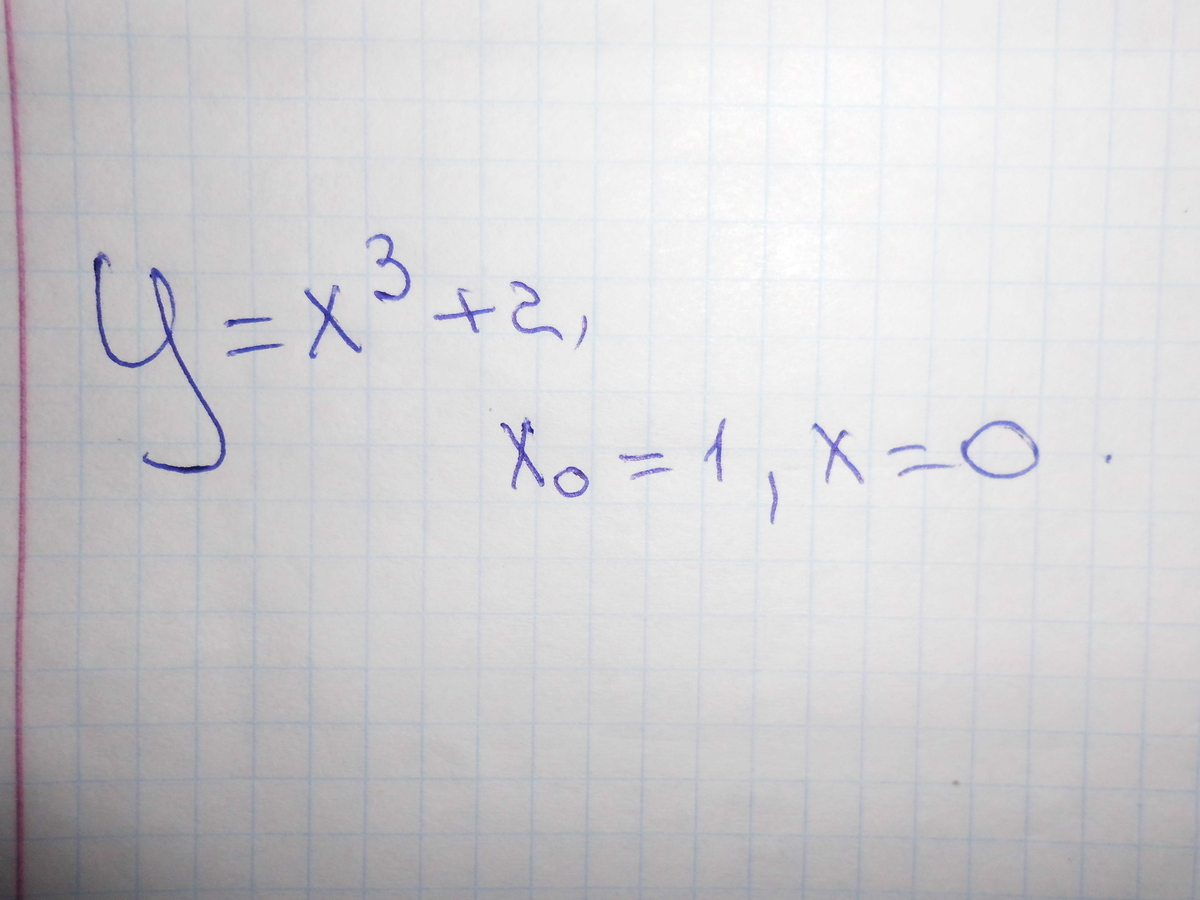 y = x³ + 2,
x₀ = 1, x = 0.